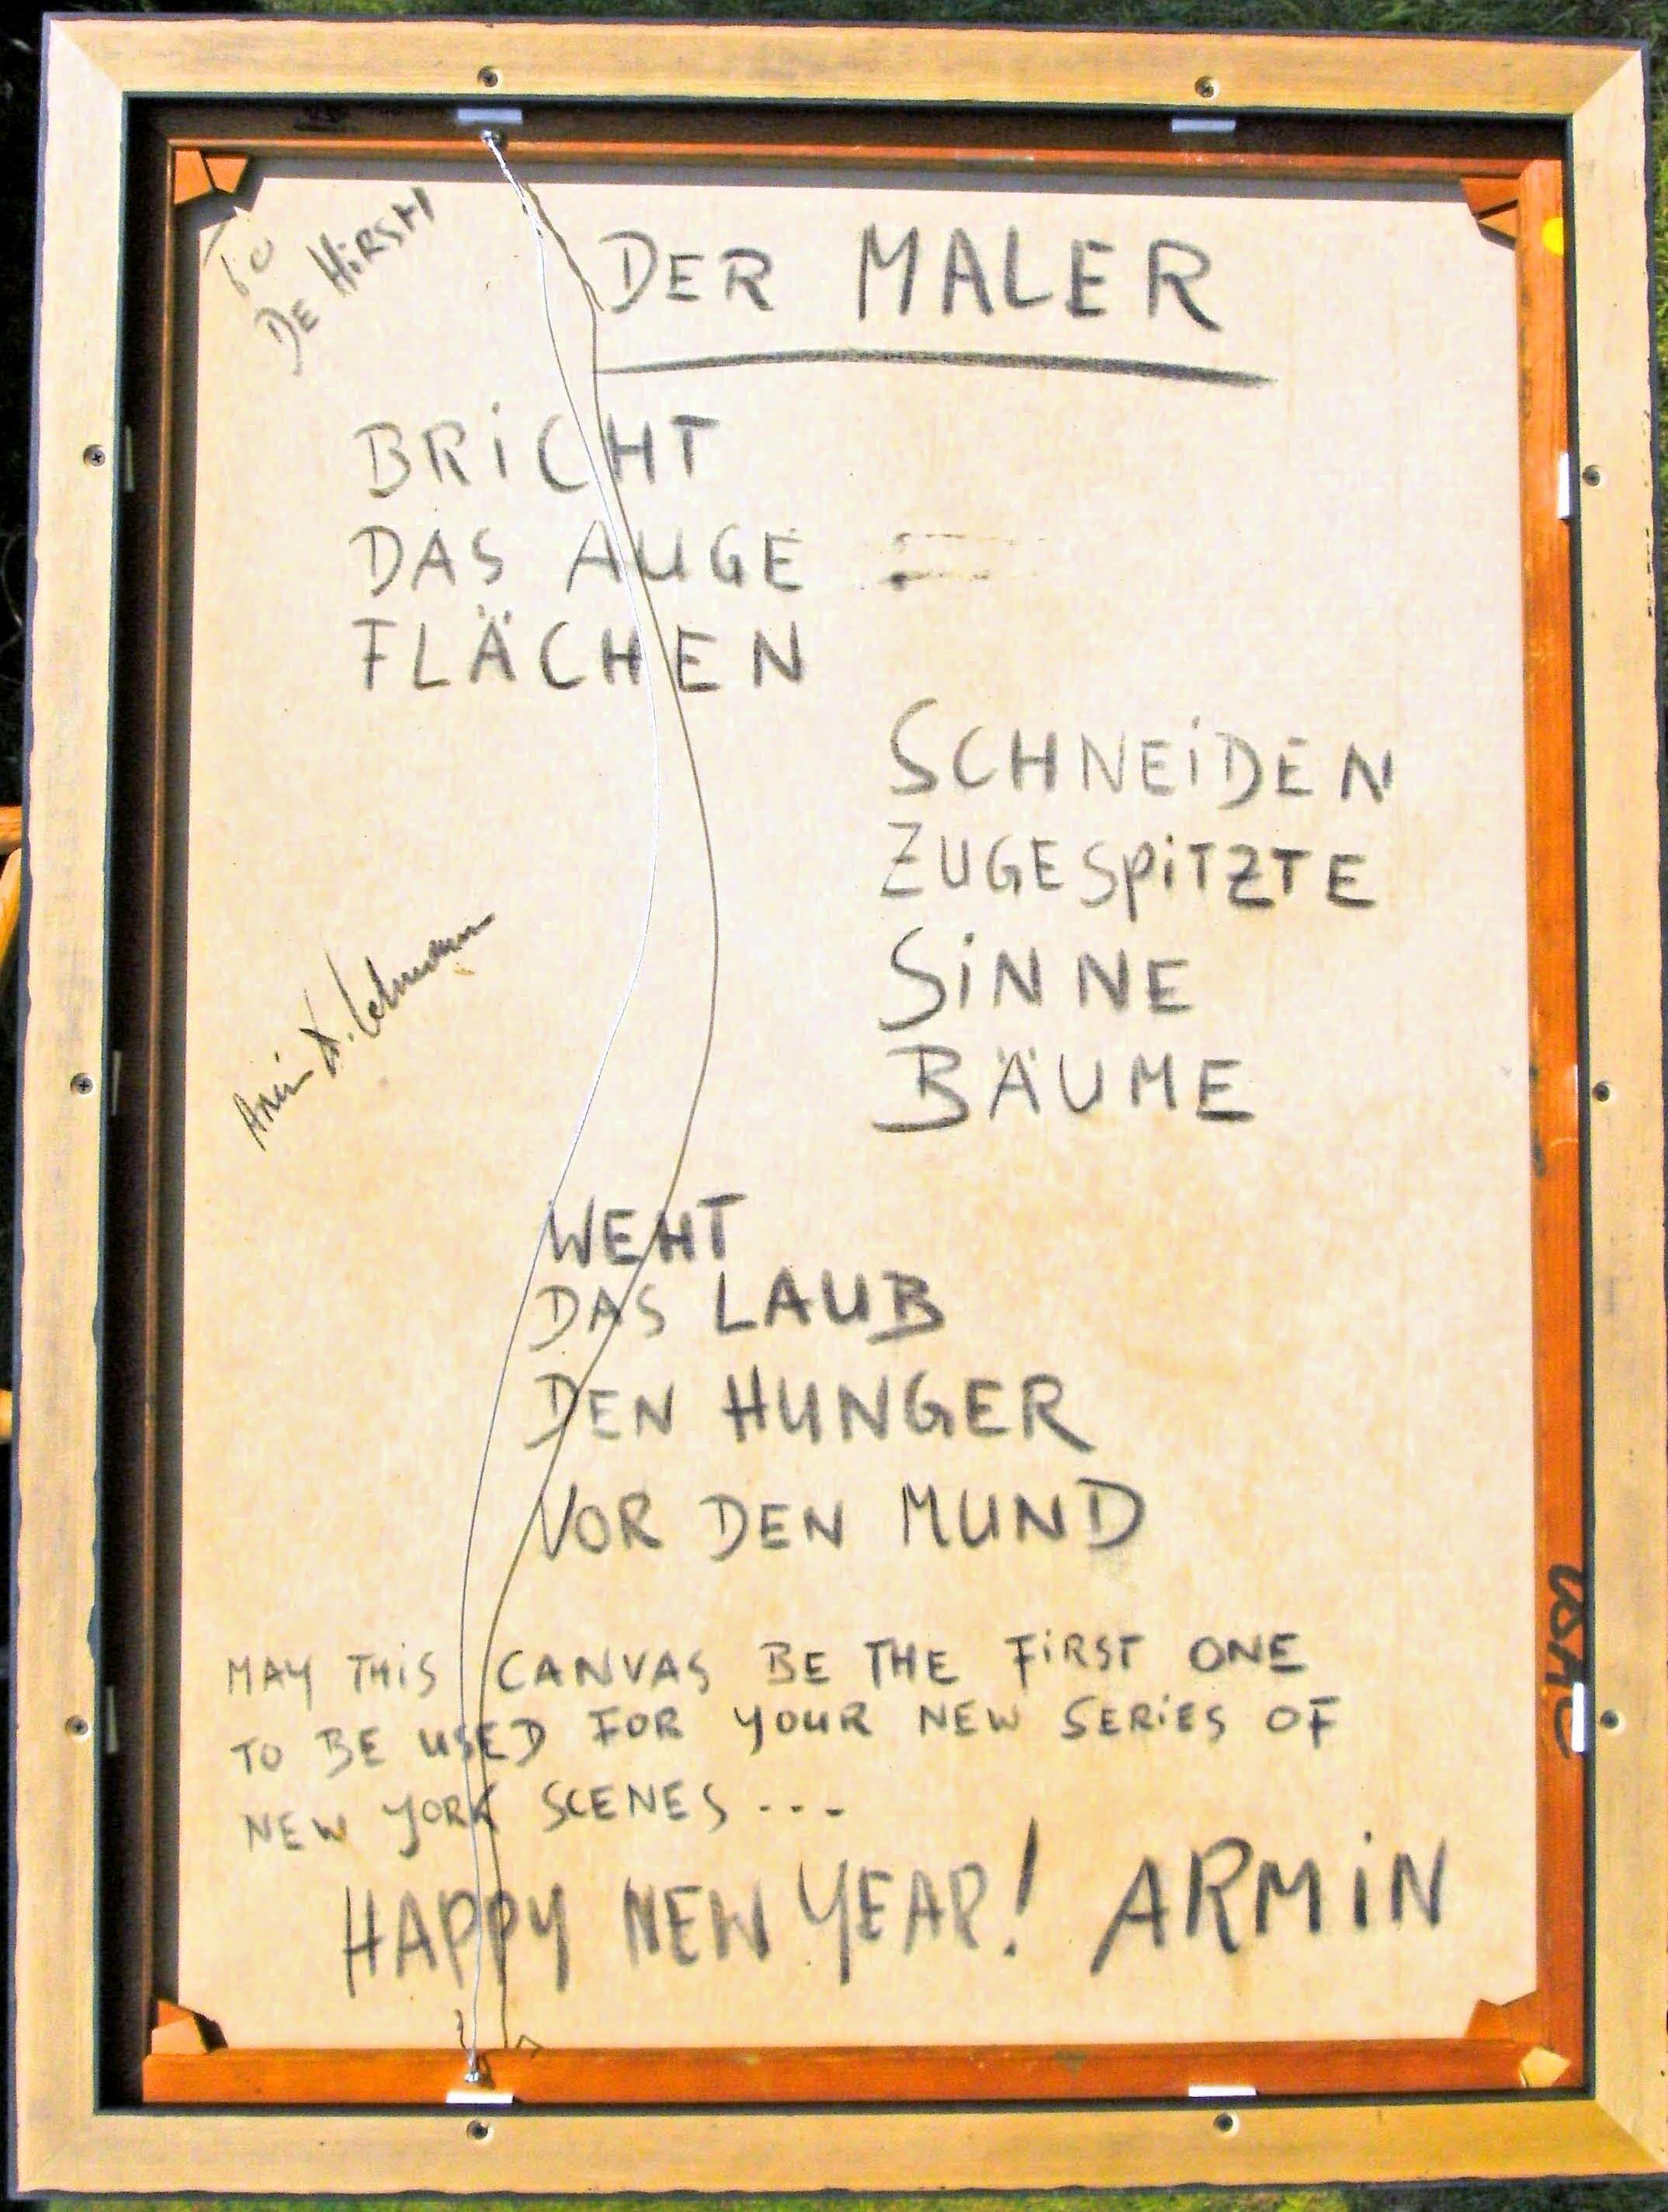 To
De HiRSH
DER MALER
BRiCHT
DAS AUGE
FLÄCHEN
SCHNEiDEN
ZUGESPiTZTE
SiNNE
BÄUME
Armin D. Lehmann
WEHT
DAS LAUB
DEN HUNGER
VOR DEN MUND
MAY THiS CANVAS BE THE FiRST ONE
TO BE USED FOR YOUR NEW SERiES OF
NEW YORK SCENES ...
HAPPY NEW YEAR! ARMiN